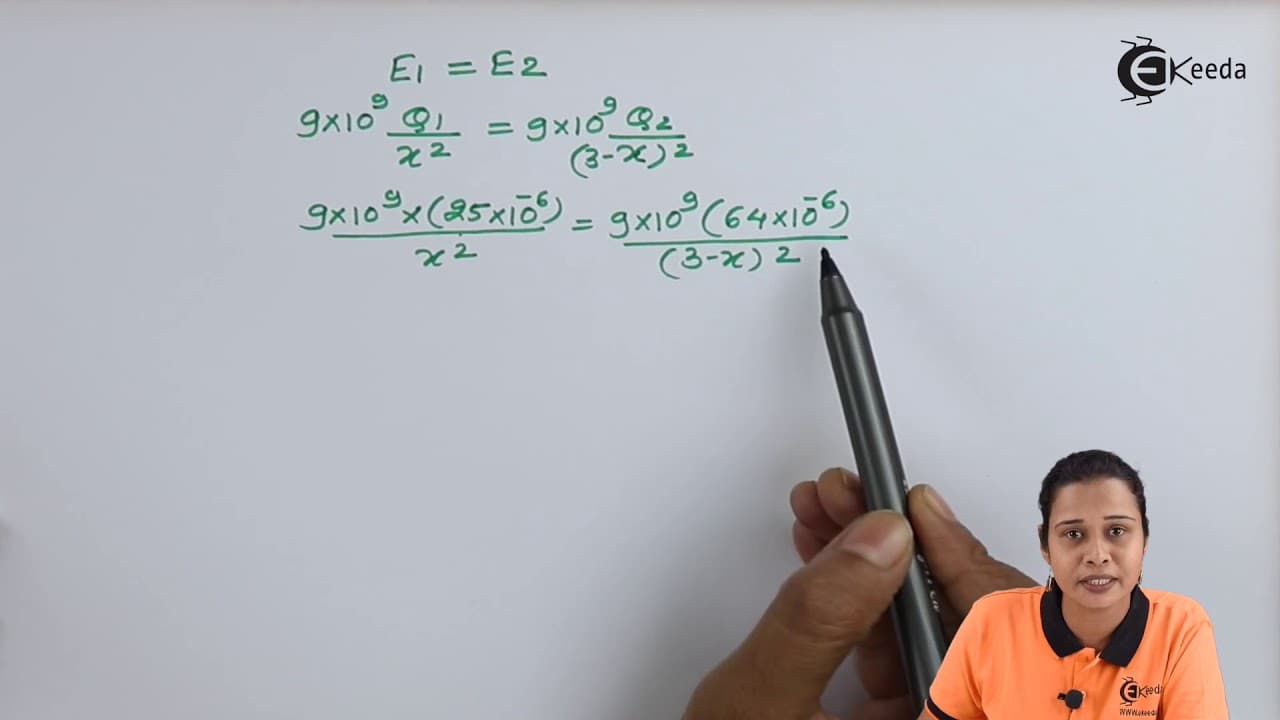 E1 = E2
9×10⁹ Q1/x² = 9×10⁹ Q2/(3-x)²
9×10⁹×(25×10⁻⁶)/x² = 9×10⁹(64×10⁻⁶)/(3-x)²
EKeeda
EKeeda
www.ekeeda